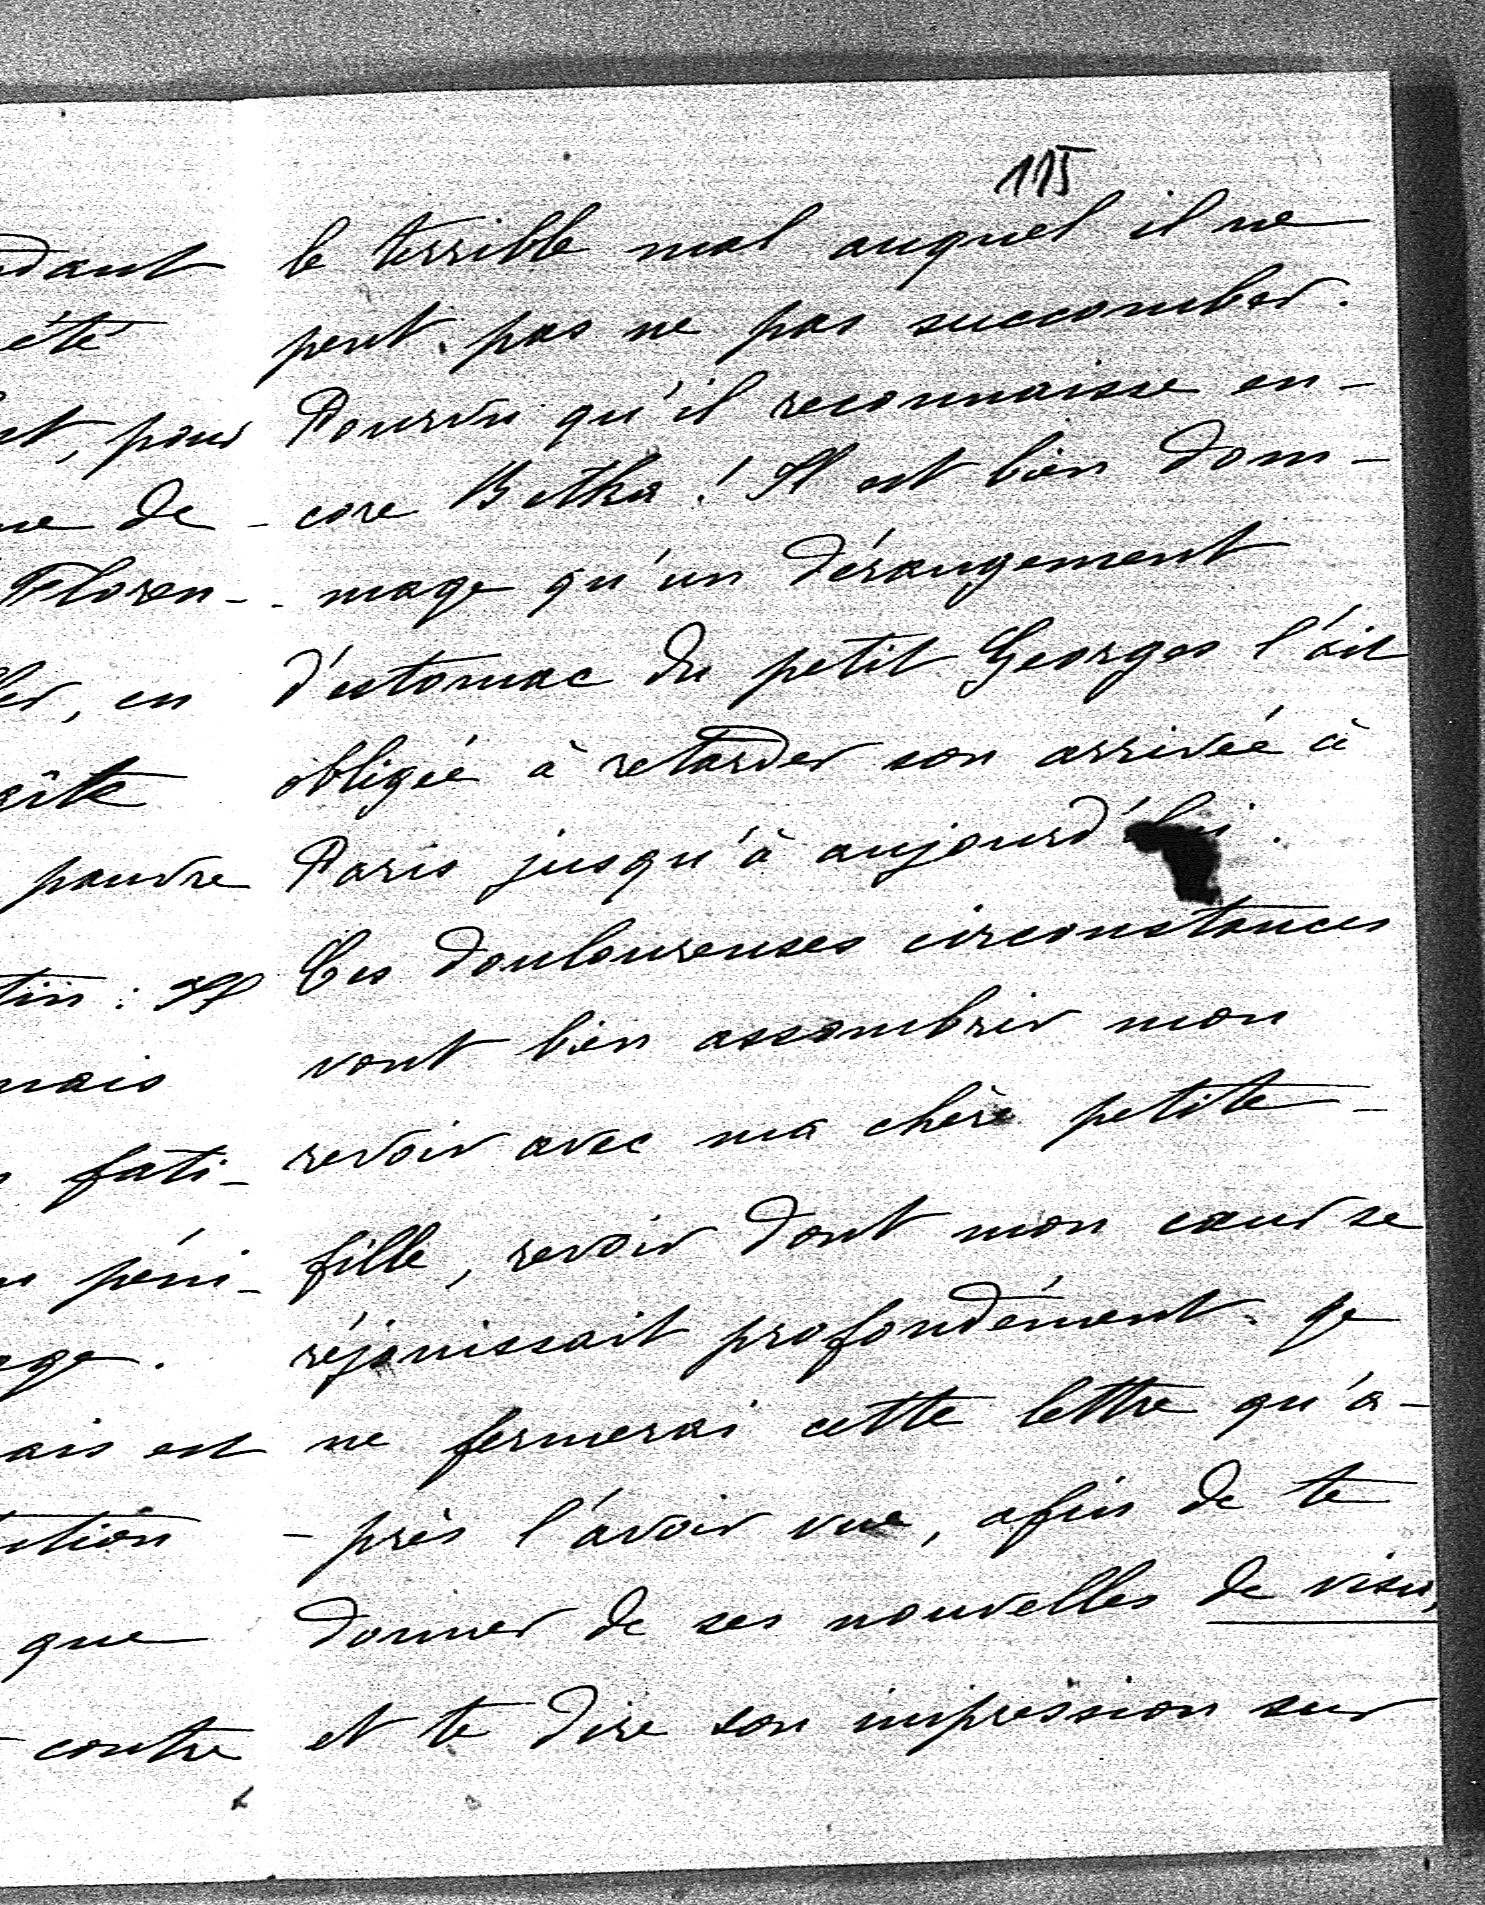 115
le terrible mal auquel il ne
peut pas ne pas succomber.
Pourvu qu'il reconnaisse en-
-core Betha! Il est bien dom-
-mage qu'un dérangement
d'estomac du petit Georges l'ait
obligée à retarder son arrivée à
Paris jusqu'à aujourd'hui.
Ces douloureuses circonstances
vont bien assombrir mon
revoir avec ma chère petite-
fille, revoir dont mon cœur se
réjouissait profondément. Je
ne fermerai cette lettre qu'a-
-près l'avoir vue, afin de te
donner de ses nouvelles de visu,
et te dire son impression sur
dant
été
pour
de
Floren-
en
pauvre
Il
fati-
péni-
est
que
contre